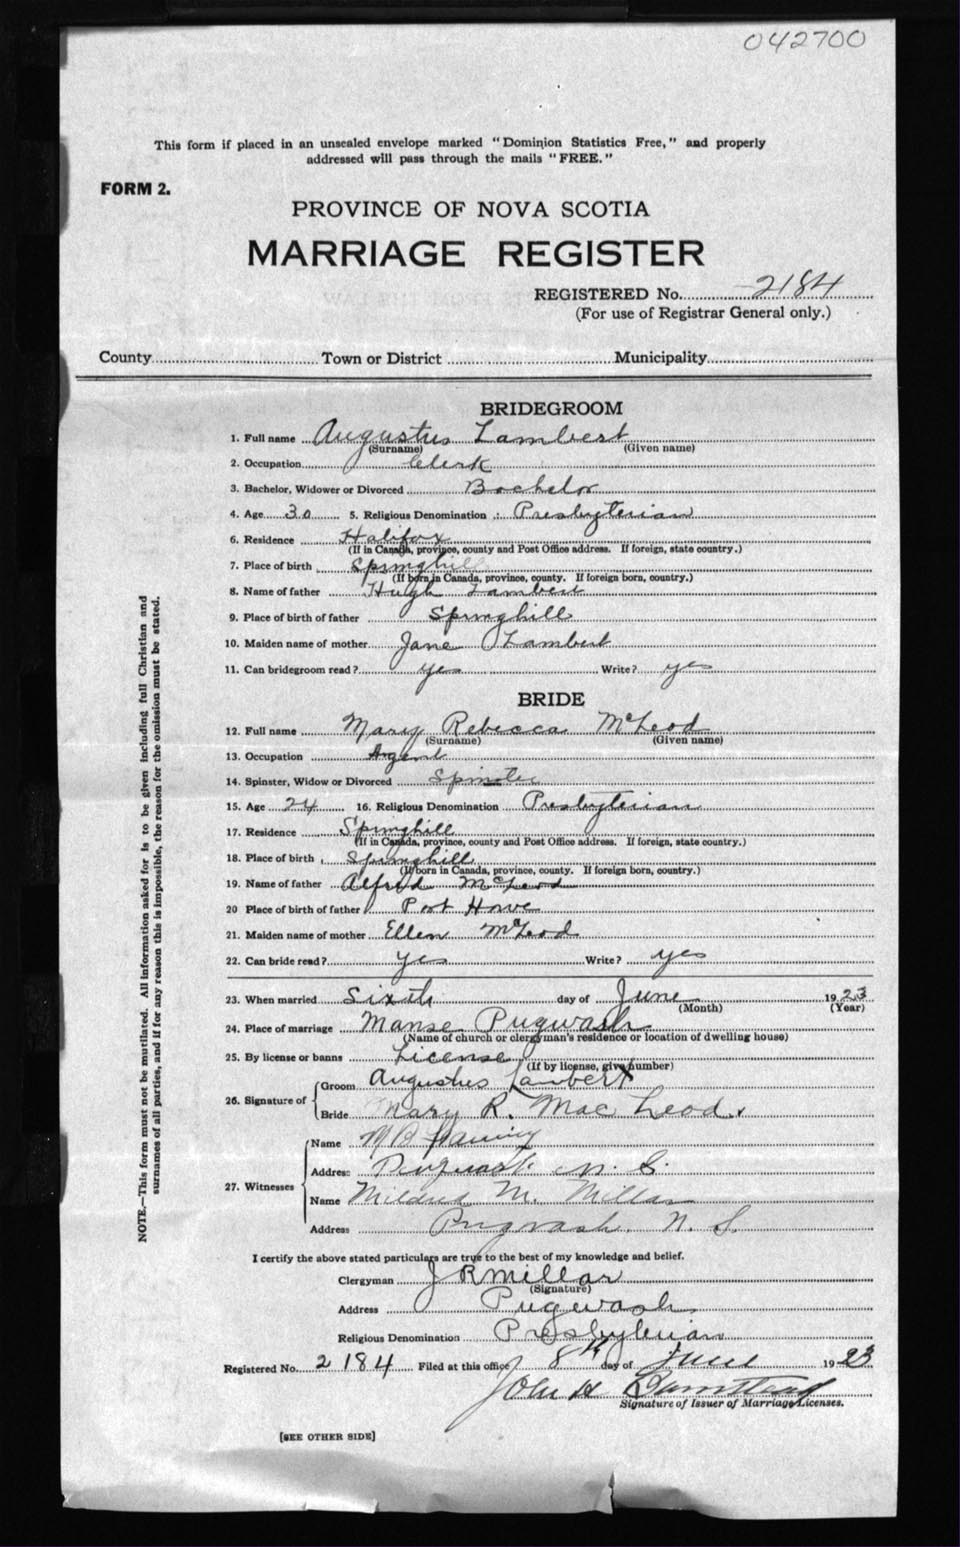 042700
This form if placed in an unsealed envelope marked "Dominion Statistics Free," and properly
addressed will pass through the mails "FREE."
FORM 2.
PROVINCE OF NOVA SCOTIA
MARRIAGE REGISTER
REGISTERED No. 2184
(For use of Registrar General only.)
County Town or District Municipality
BRIDEGROOM
1. Full name Augustus Lambert
(Surname) (Given name)
2. Occupation Clerk
3. Bachelor, Widower or Divorced Bachelor
4. Age 30 5. Religious Denomination Presbyterian
6. Residence Halifax
(If in Canada, province, county and Post Office address. If foreign, state country.)
7. Place of birth Springhill
(If born in Canada, province, county. If foreign born, country.)
8. Name of father Hugh Lambert
9. Place of birth of father Springhill
10. Maiden name of mother Jane Lambert
11. Can bridegroom read? yes Write? yes
BRIDE
12. Full name Mary Rebecca McLeod
(Surname) (Given name)
13. Occupation Agent
14. Spinster, Widow or Divorced Spinster
15. Age 24 16. Religious Denomination Presbyterian
17. Residence Springhill
(If in Canada, province, county and Post Office address. If foreign, state country.)
18. Place of birth Springhill
(If born in Canada, province, county. If foreign born, country.)
19. Name of father Alfred McLeod
20 Place of birth of father Port Howe
21. Maiden name of mother Ellen McLeod
22. Can bride read? yes Write? yes
23. When married Sixth day of June 1923
(Month) (Year)
24. Place of marriage Manse Pugwash
(Name of church or clergyman's residence or location of dwelling house)
25. By license or banns License
(If by license, give number)
26. Signature of Groom Augustus Lambert
Bride Mary R. Mac Leod.
27. Witnesses Name M B
Address Pugwash N. S.
Name Mildred M. Millar
Address Pugwash. N. S.
I certify the above stated particulars are true to the best of my knowledge and belief.
Clergyman J R Millar
(Signature)
Address Pugwash
Religious Denomination Presbyterian
Registered No. 2184 Filed at this office 8th day of June 1923
John H
Signature of Issuer of Marriage Licenses.
[SEE OTHER SIDE]
NOTE.—This form must not be mutilated. All information asked for is to be given including full Christian and
surnames of all parties, and if for any reason this is impossible, the reason for the omission must be stated.